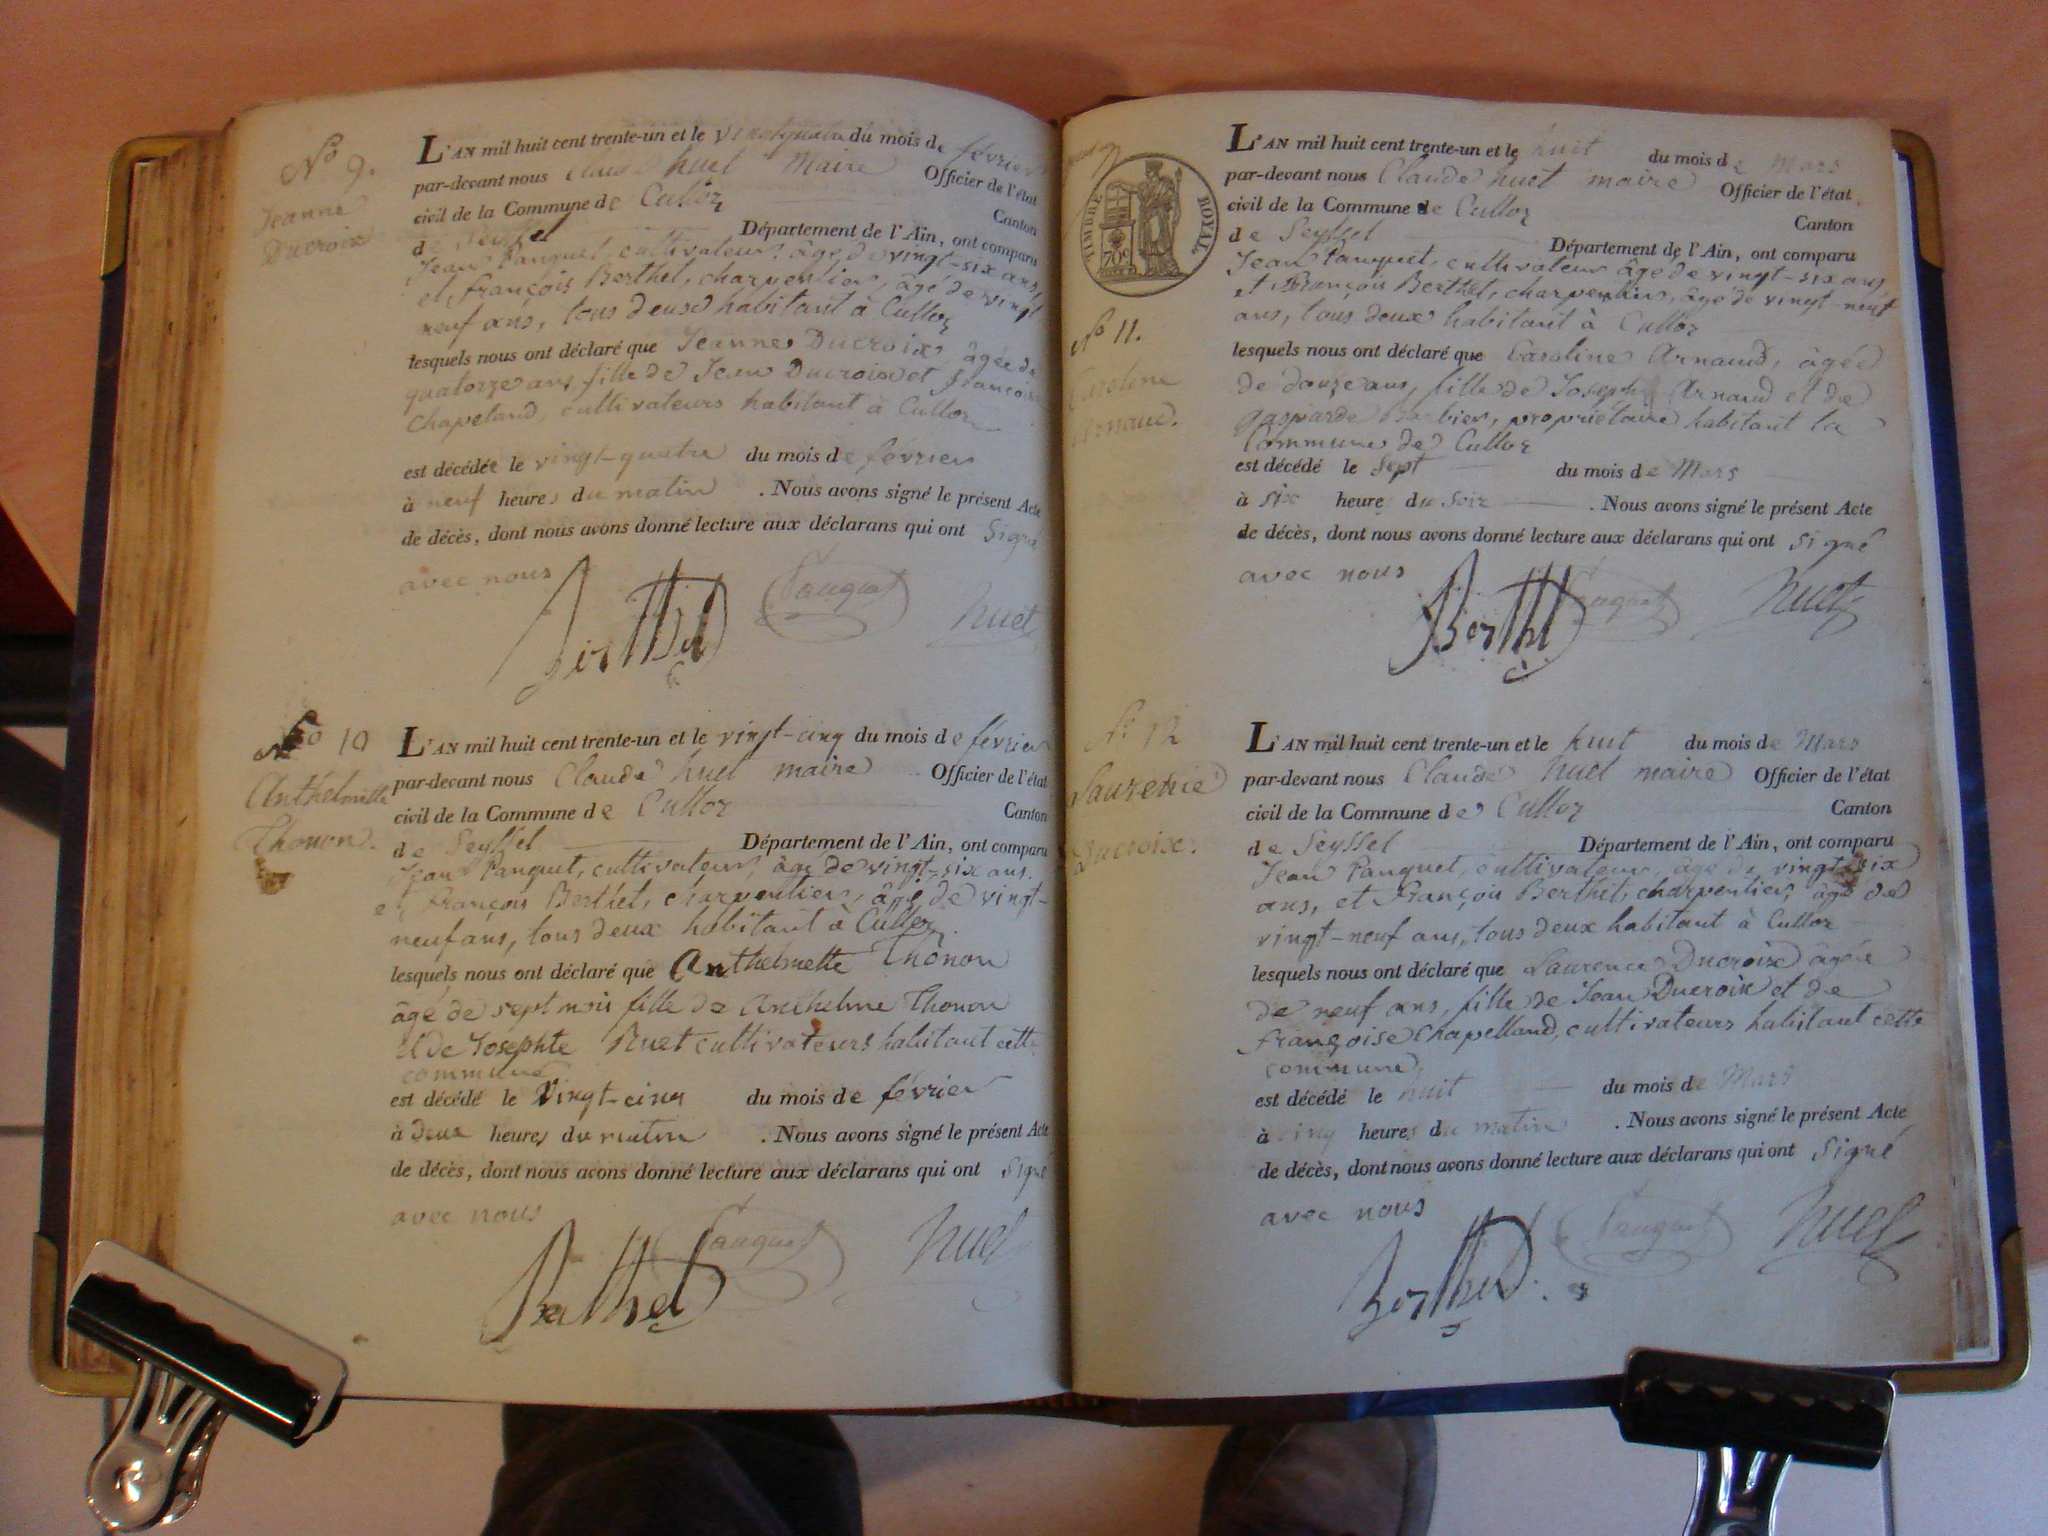 No 9.
Jeanne
Ducroix
L'AN mil huit cent trente-un et le vingtquatre du mois de février
par-devant nous Claude huet Maire Officier de l'état
civil de la Commune de Culloz Canton
de Seyssel Département de l'Ain, ont comparu
Jean Pauquet, cultivateur, âgé de vingt-six ans,
et françois Berthet, charpentier, âgé de vingt
neuf ans, tous deux habitant à Culloz
lesquels nous ont déclaré que Jeanne Ducroix âgée de
quatorze ans, fille de Jean Ducroix et françoise
Chapeland, cultivateurs habitant à Culloz
est décédée le vingt-quatre du mois de février
à neuf heures du matin . Nous avons signé le présent Acte
de décès, dont nous avons donné lecture aux déclarans qui ont Signé
avec nous
Berthet Pauquet huet
No 10
Anthelmette
Thonon.
L'AN mil huit cent trente-un et le vingt-cinq du mois de février
par-devant nous Claude huet maire Officier de l'état
civil de la Commune de Culloz Canton
de Seyssel Département de l'Ain, ont comparu
Jean Pauquet, cultivateur, âgé de vingt-six ans.
et François Berthet, charpentier, âgé de vingt-
neuf ans, tous deux habitant à Culloz.
lesquels nous ont déclaré que Anthelmette Thonon
âgé de sept mois fille de Anthelme Thonon
et de Josephte Ruet cultivateurs habitant cette
commune
est décédé le Vingt-cinq du mois de février
à deux heures du matin . Nous avons signé le présent Acte
de décès, dont nous avons donné lecture aux déclarans qui ont signé
avec nous
Berthet Pauquet huet
TIMBRE ROYAL
70c
No 11.
Caroline
Arnaud.
L'AN mil huit cent trente-un et le huit du mois de Mars
par-devant nous Claude huet maire Officier de l'état
civil de la Commune de Culloz Canton
de Seyssel Département de l'Ain, ont comparu
Jean Pauquet, cultivateur âgé de vingt-six ans,
et François Berthet, charpentier, âgé de vingt-neuf
ans, tous deux habitant à Culloz
lesquels nous ont déclaré que Caroline Arnaud, âgée
de douze ans, fille de Joseph Arnaud et de
gasparde Barbier, propriétaire habitant la
Commune de Culloz
est décédé le Sept du mois de Mars
à six heure du Soir . Nous avons signé le présent Acte
de décès, dont nous avons donné lecture aux déclarans qui ont signé
avec nous
Berthet Pauquet huet
No 12
Laurence
Ducroix.
L'AN mil huit cent trente-un et le huit du mois de Mars
par-devant nous Claude huet maire Officier de l'état
civil de la Commune de Culloz Canton
de Seyssel Département de l'Ain, ont comparu
Jean Pauquet, cultivateur, âgé de vingt-six
ans, et François Berthet, charpentier, âgé de
vingt-neuf ans, tous deux habitant à Culloz
lesquels nous ont déclaré que Laurence Ducroix âgée
de neuf ans, fille de Jean Ducroix et de
françoise Chapelland, cultivateurs habitant cette
commune,
est décédé le huit du mois de Mars
à cinq heures du matin . Nous avons signé le présent Acte
de décès, dont nous avons donné lecture aux déclarans qui ont signé
avec nous
Berthet Pauquet huet